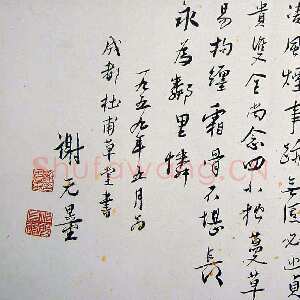 凌風煙事跡無固必幽貞
貴雙全尚念四小松蔓草
易拘纏霜骨不堪長
永為鄰里憐
一九五九年五月為
成都杜甫草堂書
謝无量